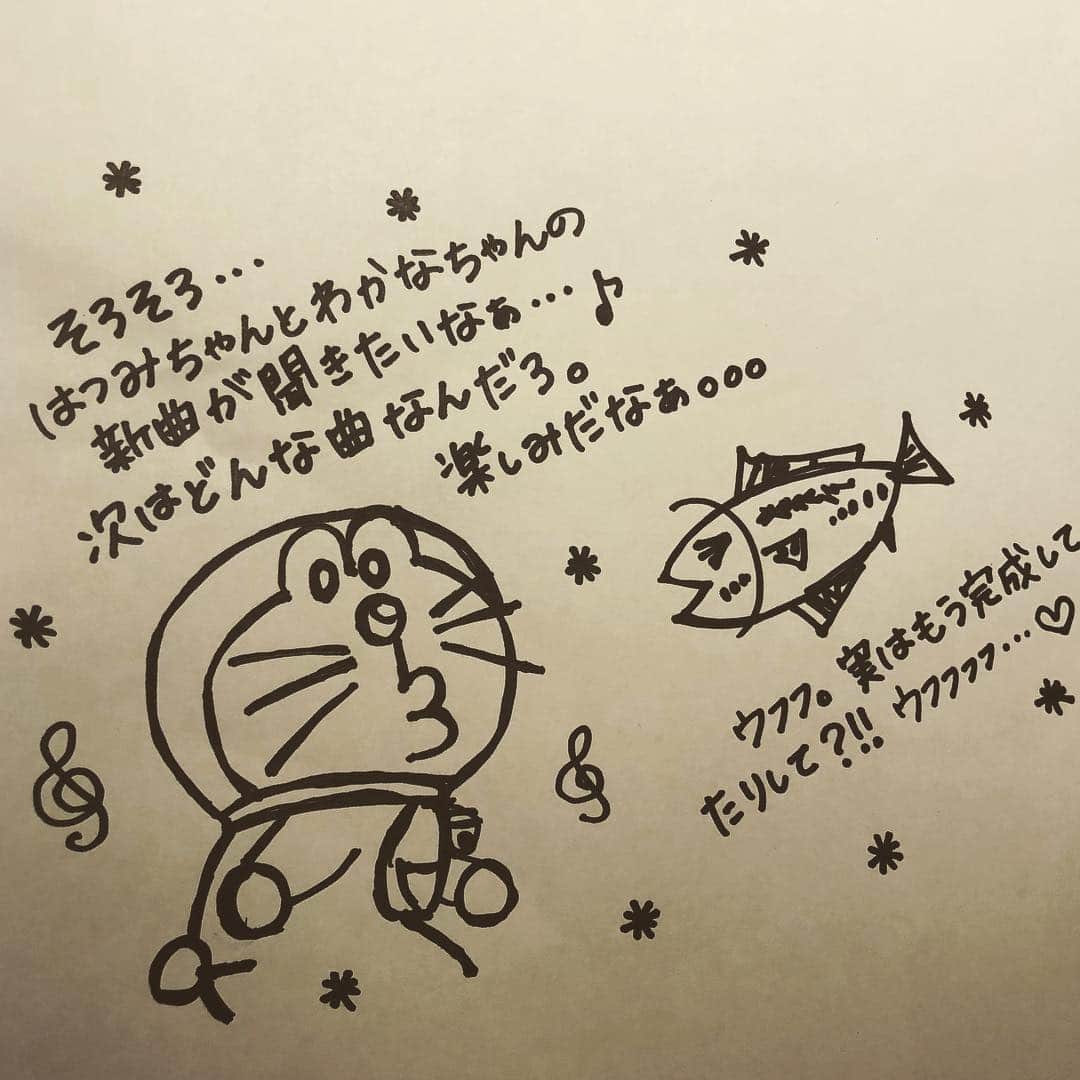 そろそろ...
はつみちゃんとわかなちゃんの
新曲が聞きたいなぁ...♪
次はどんな曲なんだろ。
楽しみだなぁ。。。
ウフフ。実はもう完成して
たりして?!! ウフフフフ...♡